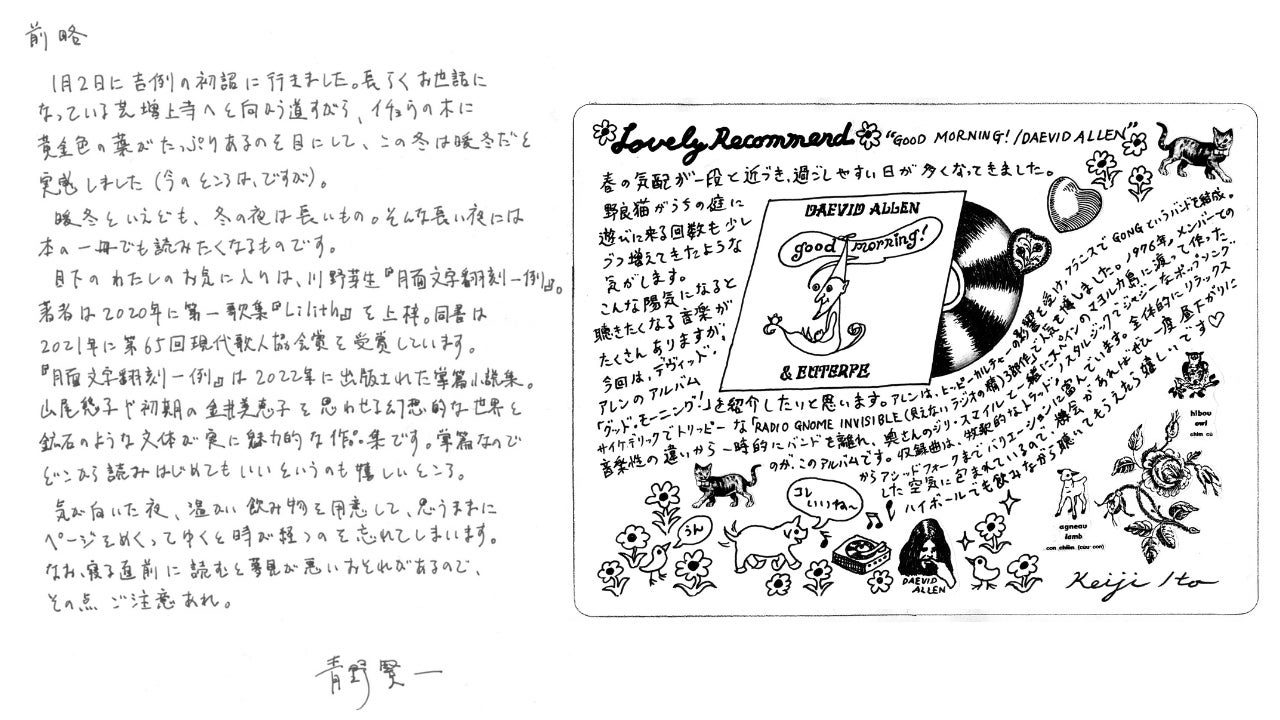 前略
1月2日に吉例の初詣に行きました。長らくお世話に
なっている芝増上寺へと向かう道すがら、イチョウの木に
黄金色の葉がたっぷりあるのを目にして、この冬は暖冬だと
実感しました(今のところは、ですが)。
暖冬といえども、冬の夜は長いもの。そんな長い夜には
本の一冊でも読みたくなるものです。
目下のわたしのお気に入りは、川野芽生『月面文字翻刻一例』。
著者は2020年に第一歌集『Lilith』を上梓。同書は
2021年に第65回現代歌人協会賞を受賞しています。
『月面文字翻刻一例』は2022年に出版された掌篇小説集。
山尾悠子や初期の金井美恵子を思わせる幻想的な世界と
鉱石のような文体が実に魅力的な作品集です。掌篇なので
どこから読みはじめてもいいというのも嬉しいところ。
気が向いた夜、温かい飲み物を用意して、思うままに
ページをめくってゆくと時が経つのを忘れてしまいます。
なお、寝る直前に読むと夢見が悪いおそれがあるので、
その点ご注意あれ。
青野賢一
Lovely Recommend "GOOD MORNING! / DAEVID ALLEN"
春の気配が一段と近づき、過ごしやすい日が多くなってきました。
野良猫がうちの庭に
遊びに来る回数も少し
づつ増えてきたような
気がします。
こんな陽気になると
聴きたくなる音楽が
たくさんありますが、
今回は、デヴィッド・
アレンのアルバム
「グッド・モーニング!」を紹介したいと思います。アレンは、ヒッピーカルチャーの影響を受け、フランスでGONGというバンドを結成。
サイケデリックでトリッピーな「RADIO GNOME INVISIBLE (見えないラジオの精)3部作」で人気を博しました。1976年、メンバーでの
音楽性の違いから一時的にバンドを離れ、奥さんのジリ・スマイルと一緒にスペインのマヨルカ島に渡って作った
のが、このアルバムです。収録曲は、牧歌的なトラッド、ノスタルジックでジャジーなポップソング
からアシッドフォークまでバリエーションに富んでいます。全体的にリラックス
した空気に包まれているので、機会があればぜひ一度昼下がりに
ハイボールでも飲みながら聴いてもらえたら嬉しいです♡
DAEVID ALLEN
good morning!
& EUTERPE
コレいいね〜
うん
DAEVID
ALLEN
hibou
owl
agneau
lamb
Keiji Ito